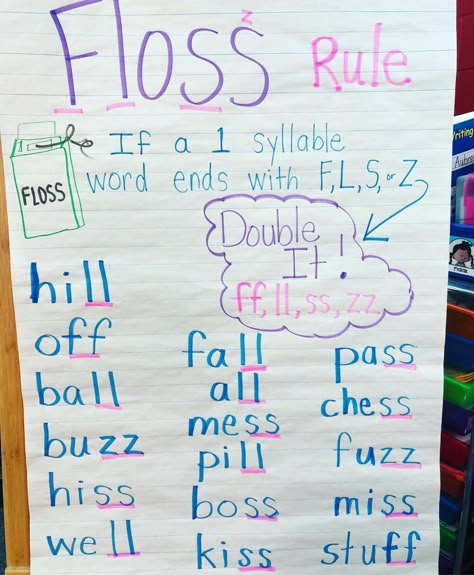 Floss Rule
z
FLOSS
If a 1 syllable
word ends with F, L, S, or Z,
Double
It!
ff, ll, ss, zz
hill
off
ball
buzz
hiss
well
fall
all
mess
pill
boss
kiss
pass
chess
fuzz
miss
stuff
Writing